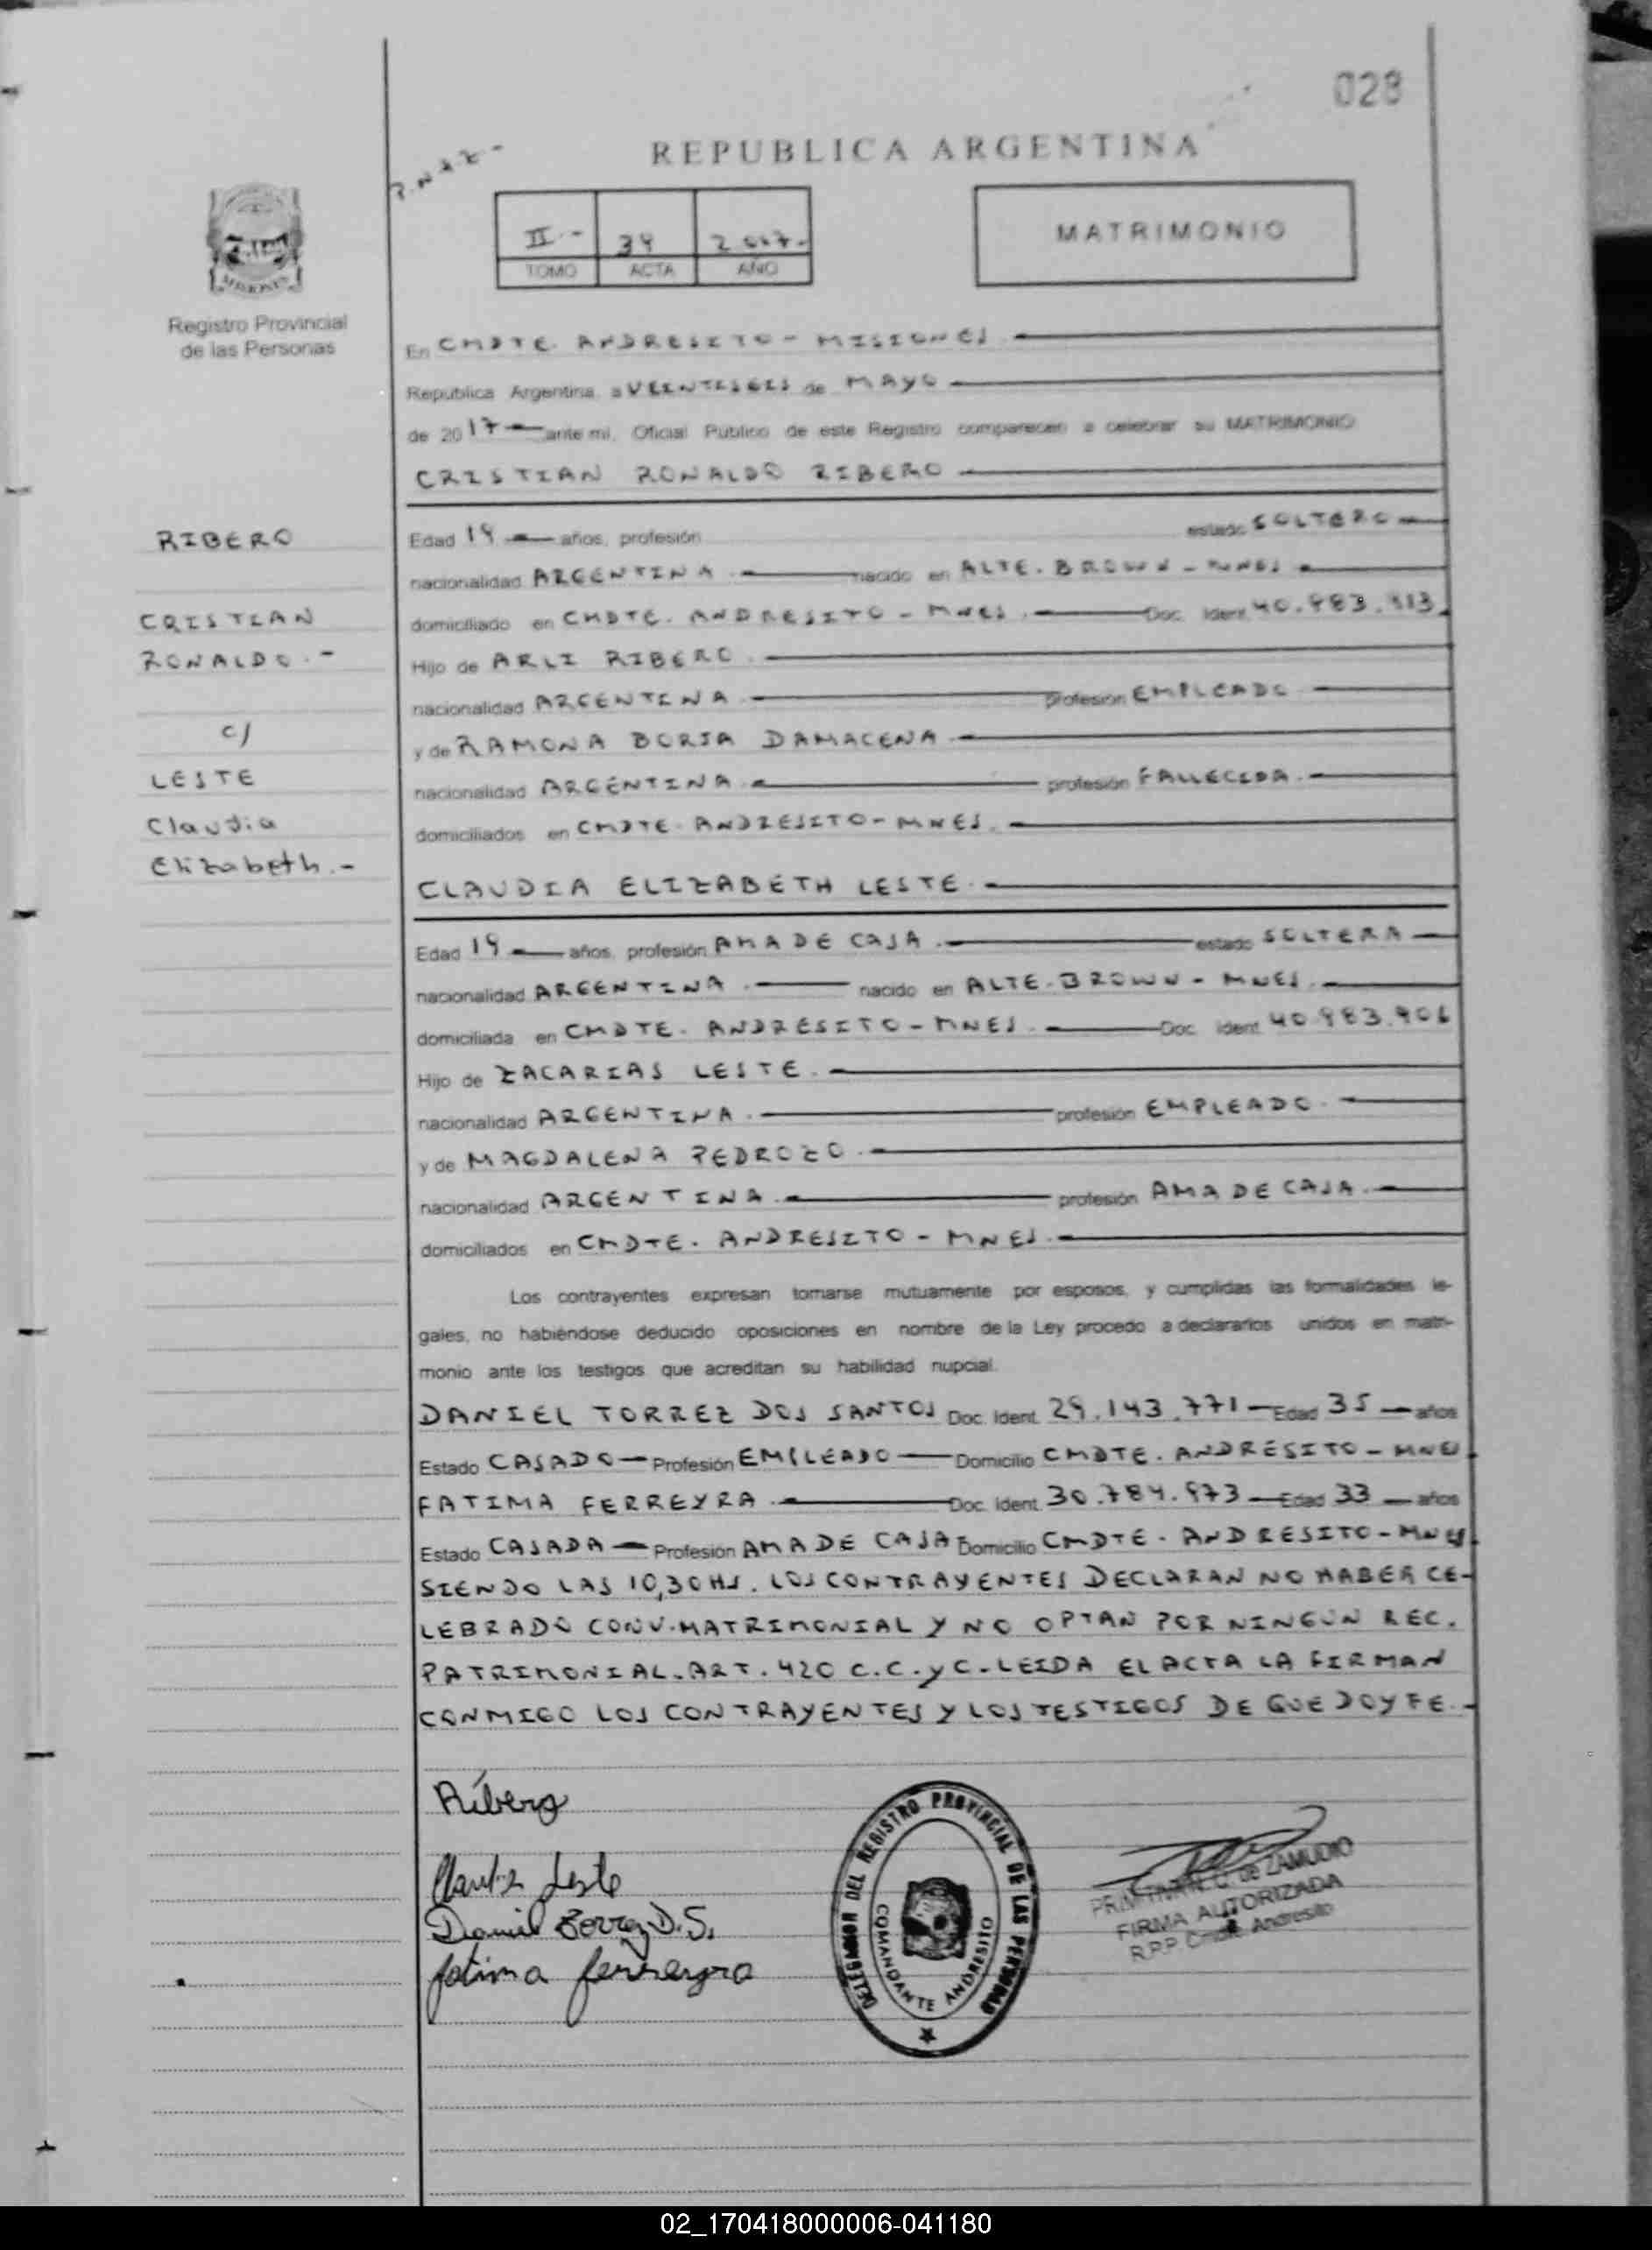 028
REPUBLICA ARGENTINA
II.- 34 2.017.-
TOMO ACTA AÑO
MATRIMONIO
MISIONES
Registro Provincial
de las Personas
En CMDTE. ANDRESITO - MISIONES
República Argentina, a VEINTISEIS de MAYO
de 2017 ante mi, Oficial Público de este Registro comparecen a celebrar su MATRIMONIO
CRISTIAN RONALDO RIBERO
RIBERO
CRISTIAN
RONALDO.-
c/
LESTE
Claudia
Elizabeth.-
Edad 19 años, profesión estado SOLTERO
nacionalidad ARGENTINA. nacido en ALTE. BROWN - MNES
domiciliado en CMDTE. ANDRESITO - MNES. Doc. Ident. 40.983.913.
Hijo de ARLI RIBERO.
nacionalidad ARGENTINA. profesión EMPLEADO.
y de RAMONA BORJA DAMACENA
nacionalidad ARGENTINA. profesión FALLECIDA.
domiciliados en CMDTE. ANDRESITO - MNES.
CLAUDIA ELIZABETH LESTE.
Edad 19 años, profesión AMA DE CASA. estado SOLTERA
nacionalidad ARGENTINA. nacido en ALTE. BROWN - MNES.
domiciliada en CMDTE. ANDRESITO - MNES. Doc. Ident. 40.983.906
Hijo de ZACARIAS LESTE.
nacionalidad ARGENTINA. profesión EMPLEADO.
y de MAGDALENA PEDROZO.
nacionalidad ARGENTINA. profesión AMA DE CASA.
domiciliados en CMDTE. ANDRESITO - MNES.
Los contrayentes expresan tomarse mutuamente por esposos, y cumplidas las formalidades le-
gales, no habiéndose deducido oposiciones en nombre de la Ley procedo a declararlos unidos en matri-
monio ante los testigos que acreditan su habilidad nupcial.
DANIEL TORREZ DOS SANTOS Doc. Ident. 29.143.771 Edad 35 años
Estado CASADO Profesión EMPLEADO Domicilio CMDTE. ANDRESITO - MNES
FATIMA FERREYRA. Doc. Ident. 30.784.973 Edad 33 años
Estado CASADA Profesión AMA DE CASA Domicilio CMDTE. ANDRESITO - MNES
SIENDO LAS 10,30 HS. LOS CONTRAYENTES DECLARAN NO HABER CE-
LEBRADO CONV. MATRIMONIAL Y NO OPTAN POR NINGUN REC.
PATRIMONIAL. ART. 420 C.C. y C. LEIDA EL ACTA LA FIRMAN
CONMIGO LOS CONTRAYENTES Y LOS TESTIGOS DE QUE DOY FE.-
Ribero
Claudia Leste
Daniel Torrez D.S.
fatima ferreyra
DELEGACION DEL REGISTRO PROVINCIAL DE LAS PERSONAS
COMANDANTE ANDRESITO
de ZAMUDIO
FIRMA AUTORIZADA
R.P.P. Cmdte. Andresito
02_170418000006-041180